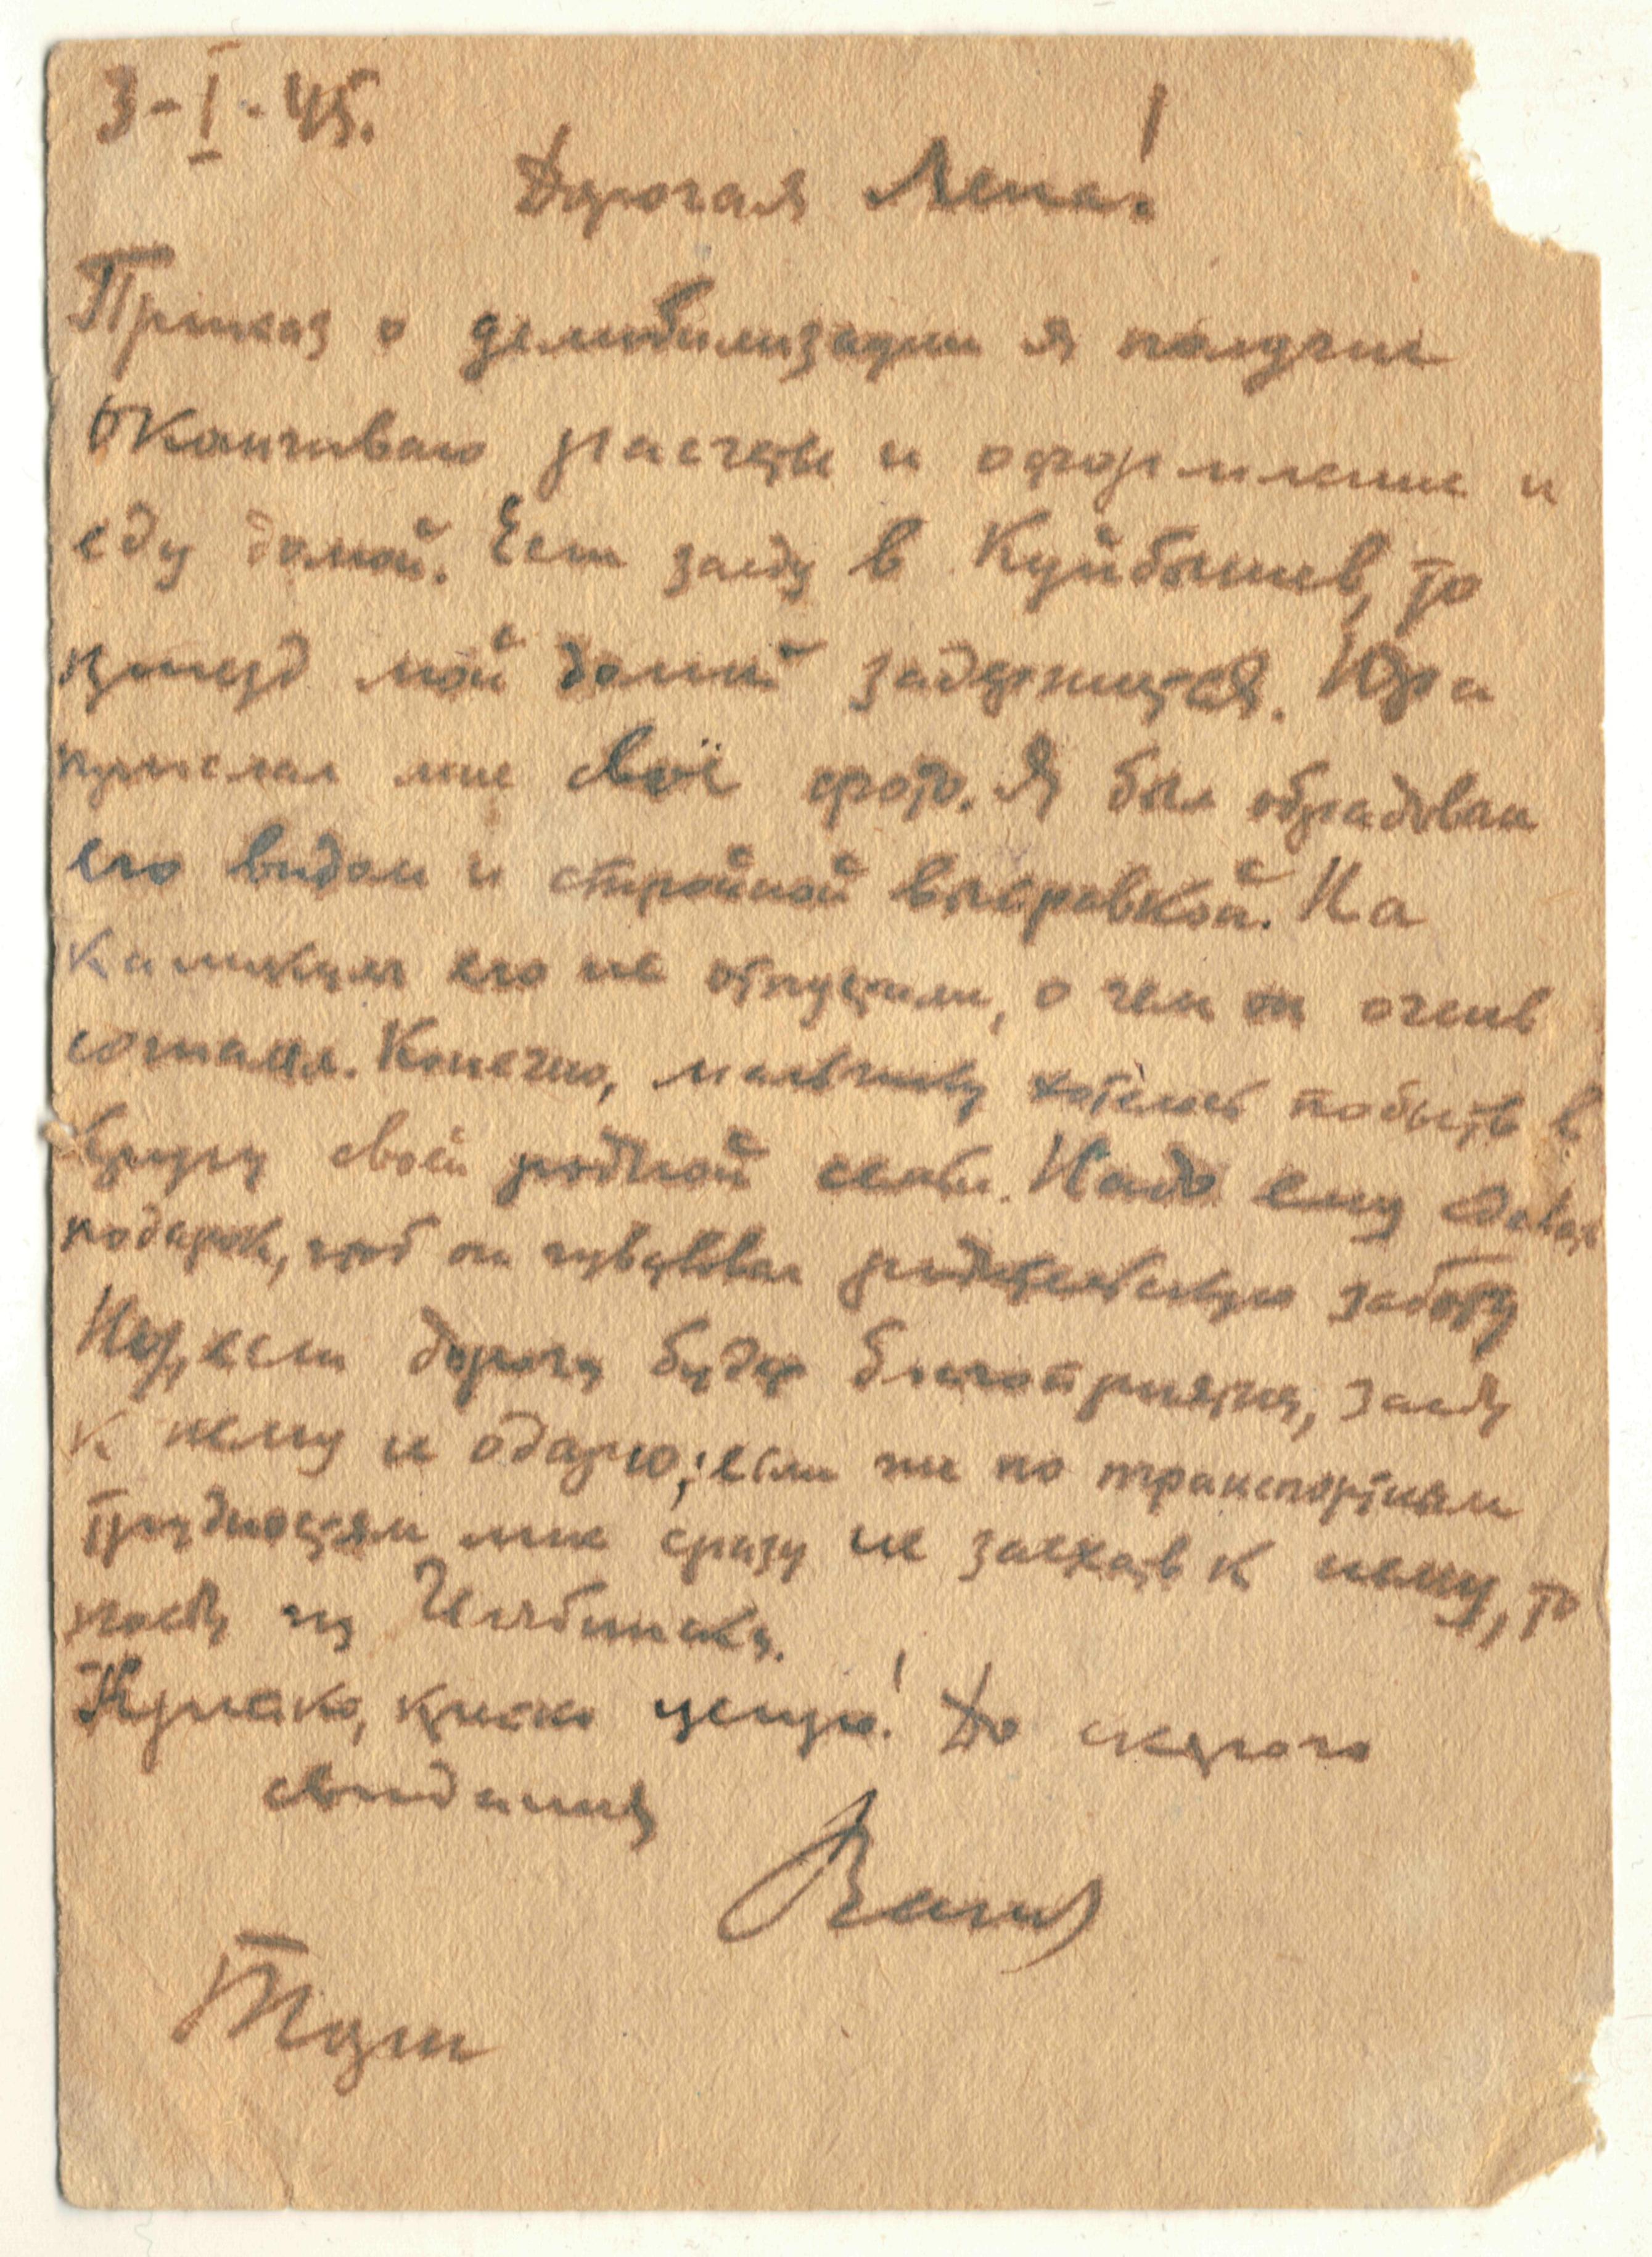 3-I-45.
Дорогая Лена!
Приказ о демобилизации я получил
Оканчиваю расчеты и оформление и
еду домой. Если заеду в Куйбышев, то
приезд мой домой задержится. Юра
прислал мне своё фото. Я был обрадован
его видом и стройной выправкой. На
каникулы его не отпустили, о чем он очень
сожалел. Конечно, мальчику хотелось побыть в
кругу своей родной семьи. Надо ему
подарок, чтоб он чувствовал родительскую заботу
если дорога будет благоприятна, заеду
к нему и одарю; если же по транспортным
трудностям мне сразу не заехать к нему, то
поеду из Челябинска.
Крепко, крепко целую! До скорого
свидания